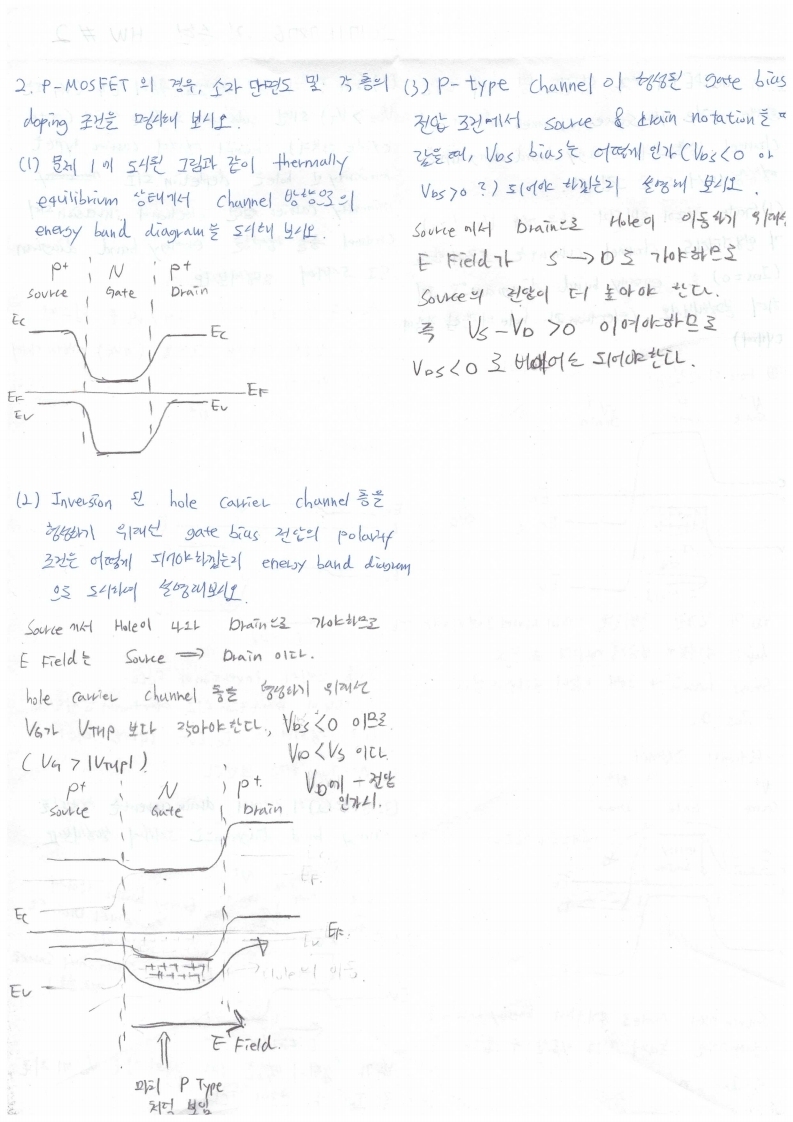 2. P-MOSFET 의 경우, 소자 단면도 및 각 층의
doping 조건을 명시해 보시오.
(1) 문제 1에 도시된 그림과 같이 thermally
equilibrium 상태에서 channel 방향으로의
energy band diagram을 도시해 보시오
P+ N P+
Source Gate Drain
Ec
Ec
EF
EF
Ev
Ev
(2) Inversion 된 hole carrier channel 층을
형성하기 위해선 gate bias 전압의 polarity
조건은 어떻게 되어야 하겠는지 energy band diagram
으로 도시하여 설명해보시오
Source 에서 Hole이 나와 Drain으로 가야하므로
E Field는 Source ⇒ Drain 이다.
hole carrier channel 층을 형성하기 위해선
VG가 VTHP 보다 작아야 한다., VDS<0 이므로
VD<VS 이다.
(VG > |VTHP|)
VD에 - 전압
인가시.
P+ N P+
Source Gate Drain
Ec
EF.
Ev
++++++
E Field.
마치 P Type
처럼 보임
(3) P-type channel 이 형성된 gate bias
전압 조건에서 source & drain notation을
같을때, VDS bias는 어떻게 인가 (VDS<0 or
VDS>0 ?) 되어야 하겠는지 설명해 보시오.
Source 에서 Drain으로 Hole이 이동하기 위해선
E Field가 S → D로 가야하므로
Source의 전압이 더 높아야 한다.
즉 VS - VD > 0 이여야하므로
VDS<0 로 되어야한다.